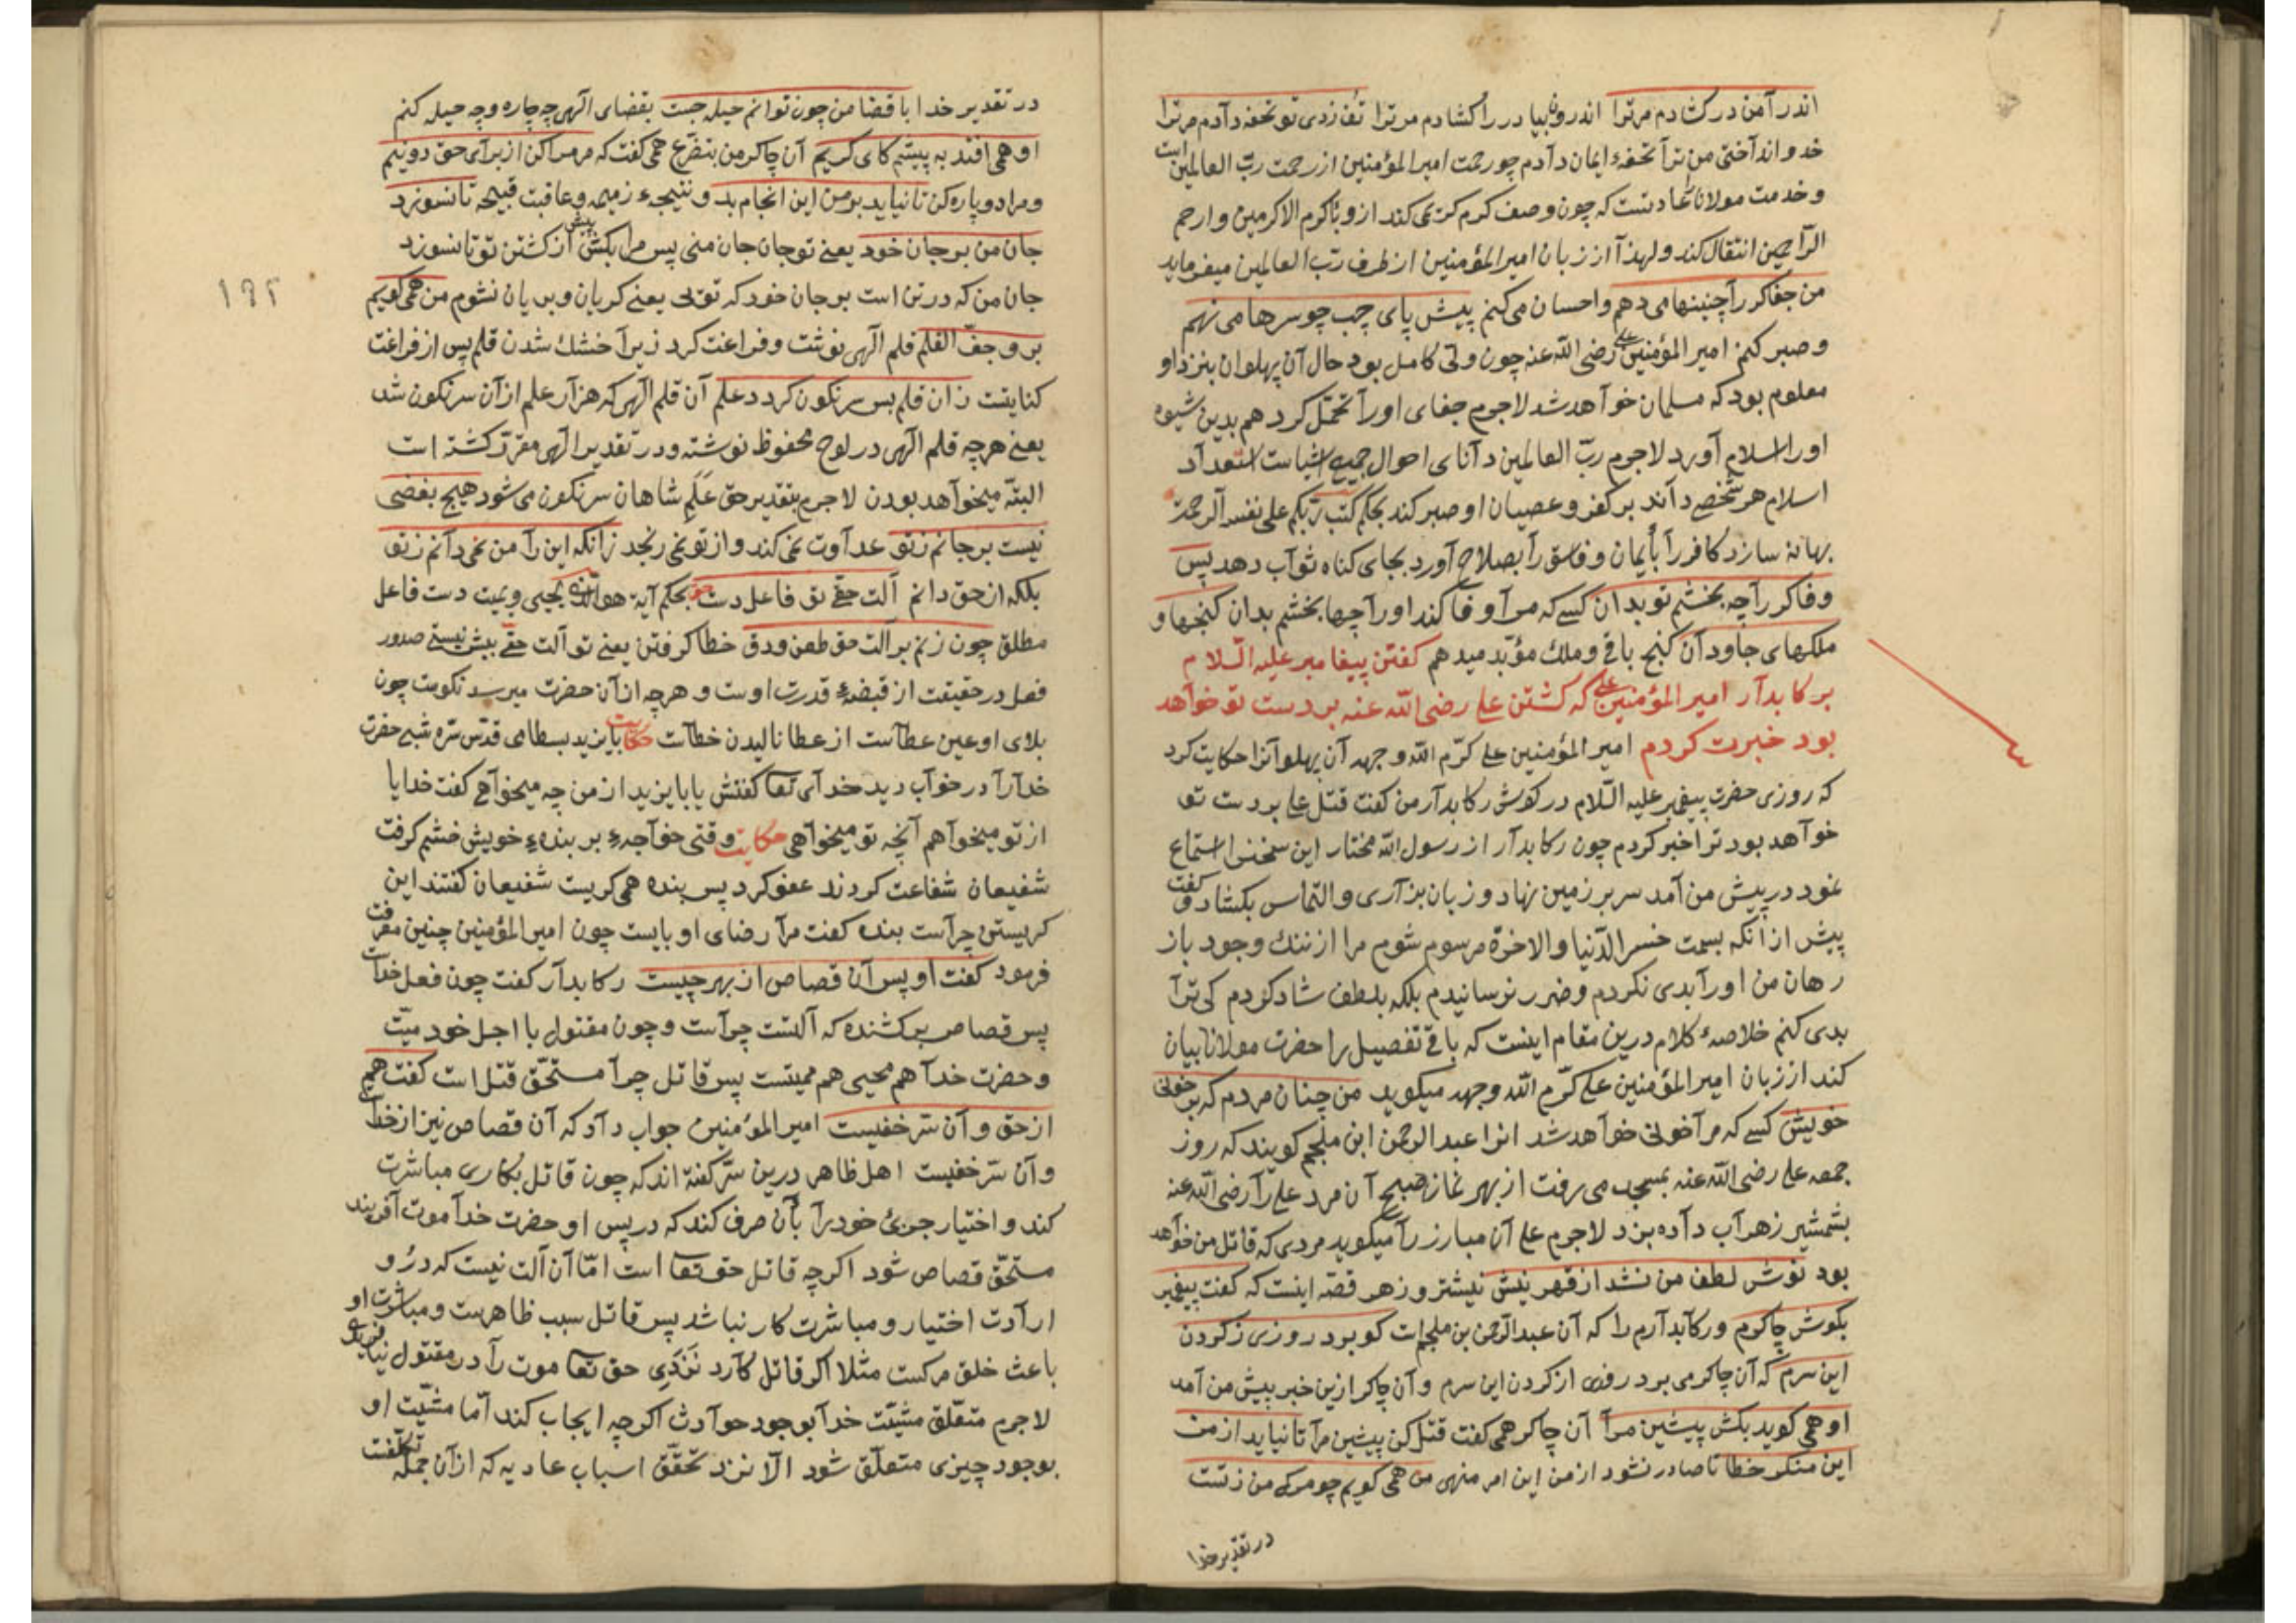 اندر آ من در کشادم مر ترا اندرون بیا در را کشادم مر ترا تف زدی تو تحفه دادم مر ترا
خدو انداختی من ترا تحفهٔ ایمان دادم چو رحمت امیر المؤمنین از رحمت ربّ العالمین است
و خدمت مولانا را عادتست که چون وصف کرم کری کند ازو باکرم الاکرمین و ارحم
الرّاحمین انتقال کند و لهذا از زبان امیر المؤمنین از طرف ربّ العالمین میفرماید
من جفاکر را چنینها می دهم و احسان می کنم پیش پای چپ چو سر ها می نهم
و صبر کنم امیر المؤمنین علی رضی الله عنه چون ولی کامل بود حال آن پهلوان بنزد او
معلوم بود که مسلمان خواهد شد لاجرم جفای او را تحمّل کرد هم بدین شیوه
او را اسلام آورد لاجرم ربّ العالمین دانای احوال جمیع اشیاست استعداد
اسلام هر شخصی داند بر کفر و عصیان او صبر کند بحکم کتب ربّکم علی نفسه الرحمة
بهانه سازد کافر را بایمان و فاسق را بصلاح آورد بجای کناه ثواب دهد پس
وفاکر را چه بخشم تو بدان کسی که مرا وفا کند او را چها بخشم بدان کنجها و
ملکهای جاودان کنج باقی و ملک مؤبّد میدهم کفتن پیغامبر علیه السّلام
بر کابدار امیر المؤمنین علی که کشتن علی رضی الله عنه بر دست تو خواهد
بود خبرت کردم امیر المؤمنین علی کرّم الله وجهه آن پهلوانرا حکایت کرد
که روزی حضرت پیغمبر علیه السّلام در کوش رکابدار من کفت قتل علی بر دست تو
خواهد بود ترا خبر کردم چون رکابدار از رسول الله مختار این سخنرا استماع
نمود در پیش من آمد سر بر زمین نهاد و زبان بزاری و التماس بکشاد و کفت
پیش از انکه بسمت خسر الدّنیا و الاخرة مرسوم شوم مرا از ننک وجود باز
رهان من او را بدی نکردم و ضرر نرسانیدم بلکه بلطف شاد کردم کی ترا
بدی کنم خلاصهٔ کلام درین مقام اینست که باقی تفصیل را حضرت مولانا بیان
کند از زبان امیر المؤمنین علی کرّم الله وجهه میکوید من چنان مردم که بر خونی
خویش کسی که مرا خونی خواهد شد انرا عبد الرحمن ابن ملجم کویند که روز
جمعه علی رضی الله عنه بمسجد می رفت از بهر نماز صبح آن مرد علی را رضی الله عنه
بشمشیر زهر آب داده بزد لاجرم علی آن مبارز را میکوید مردی که قاتل من خواهد
بود نوش لطف من نشد از قهر نیش نیشتر و زهر قصّه اینست که کفت پیغمبر
بکوش چاکرم و رکابدارم را که آن عبد الرّحمن بن ملجم است کو برد روزی ز کردن
این سرم که آن چاکر می برد روزی از کردن این سرم و آن چاکر ازین خبر پیش من آمد
او همی کوید بکش پیشین مرا آن چاکر همی کفت قتل کن پیشین مرا تا نیاید از من
این منکر خطا تا صادر نشود از من این امر منهی من همی کویم چو مرک من ز تست
در تقدیر خدا
در تقدیر خدا با قضا من چون توانم حیله جست بقضای الهی چه چاره و چه حیله کنم
او همی افتد به پیشم کای کریم آن چاکر من بتضرّع همی کفت که مر مرا کن از برای حق دو نیم
و مرا دو پاره کن تا نیاید بر من این انجام بد و نتیجهٔ ذمیمه و عاقبت قبیحه تا نسوزد
جان من بر جان خود یعنی تو جان جان منی پس مرا بکش پیش از کشتن تو تا نسوزد
جان من که در تن است بر جان خود که تویی یعنی کریان و بریان نشوم من همی کویم
برو جفّ القلم قلم الهی نوشت و فراغت کرد زیرا خشک شدن قلم پس از فراغت
کنایتست زان قلم بس سرنکون کردد علم آن قلم الهی که هزار علم از آن سرنکون شد
یعنی هر چه قلم الهی در لوح محفوظ نوشته و در تقدیر الهی مقرّر کشته است
البتّه میخواهد بودن لاجرم بتقدیر حق عَلَمِ شاهان سرنکون می شود هیچ بغضی
نیست بر جانم ز تو عداوت نمی کند و از تو نمی رنجد زانکه این را من نمی دانم ز تو
بلکه از حق دانم آلت حقی تو فاعل دست حق بحکم آیه هو الّذی یحیی و یمیت دست فاعل
مطلق چون زنم بر آلت حق طعن و دق خطا کرفتن یعنی تو آلت حقی بیش نیستی صدور
فعل در حقیقت از قبضهٔ قدرت اوست و هر چه از آن حضرت میرسد نکوست چون
بلای او عین عطاست از عطا نالیدن خطاست حکایت بایزید بسطامی قدّس سرّه شبی حضرت
خدا را در خواب دید خدای تعا کفتش یا بایزید از من چه میخواهی کفت خدایا
از تو میخواهم آنچه تو میخواهی حکایت وقتی خواجهٔ بر بندهٔ خویش خشم کرفت
شفیعان شفاعت کردند عفو کرد پس بنده همی کریست شفیعان کفتند این
کریستن چراست بنده کفت مرا رضای او بایست چون امیر المؤمنین چنین معرفت
فرمود کفت او پس آن قصاص از بهر چیست رکابدار کفت چون فعل خداست
پس قصاص بر کشنده که آلتست چراست و چون مقتول با اجل خود میّت
و حضرت خدا هم محیی هم ممیتست پس قاتل چرا مستحقّ قتل است کفت هم
از حق و آن سرّ خفیست امیر المؤمنین جواب داد که آن قصاص نیز از خداست
و آن سرّ خفیست اهل ظاهر درین سرّ کفته اند که چون قاتل بکاری مباشرت
کند و اختیار جزئی خود را بآن صرف کند که در پس او حضرت خدا موت آفریند
مستحقّ قصاص شود اکر چه قاتل حق تعا است امّا آن آلت نیست که درُو
ارادت اختیار و مباشرت کار نباشد پس قاتل سبب ظاهرست و مباشرت او
باعث خلق مرکست مثلا اکر قاتل کارد نَزَدی حق تعا موت را در مقتول نیافریدی
لاجرم متعلّق مشیّت خدا بوجود حوادث اکر چه ایجاب کند امّا مشیّت او
بوجود چیزی متعلّق شود الّا نزد تحقّق اسباب عادیه که از آن جمله
۱۹۲